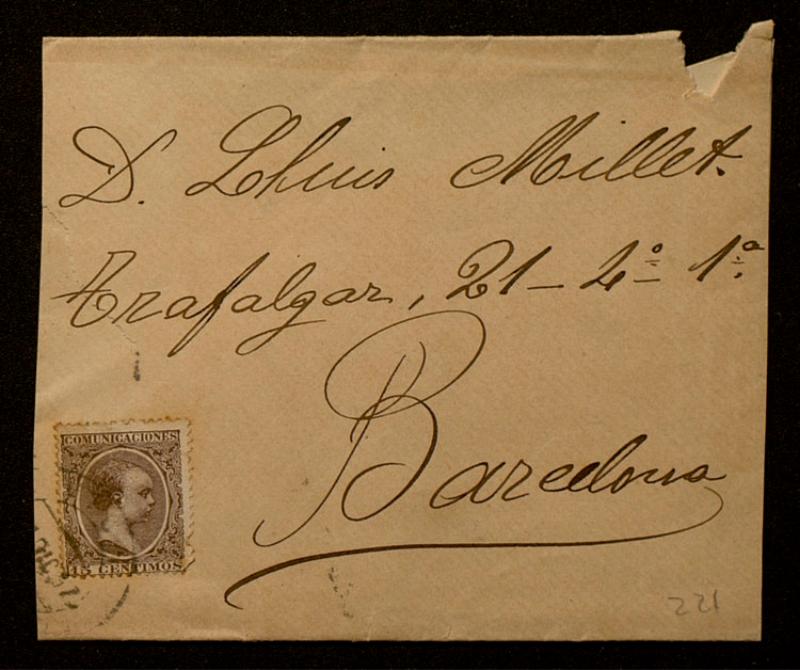 D. Lluis Millet.
Trafalgar, 21 - 4º 1ª
Barcelona
COMUNICACIONES
15 CENTIMOS
221